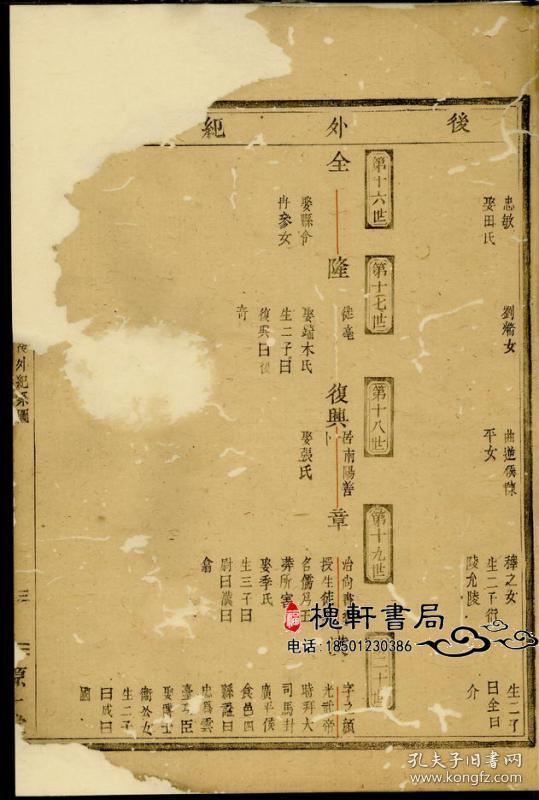 後外紀
忠敏
娶田氏
劉
女
曲逆侯陳
平女
釋之女
生二子衍
陵允陵
生二子
曰全曰
介
第十六世
第十七世
第十八世
第十九世
二十世
全
娶縣令
冉參女
隆
徙亳
娶端木氏
生二子曰
復興曰後
奇
復興
居南陽善
卜
娶張氏
章
治尚書
授生徒
名儒爲王
莽所害
娶季氏
生三子曰
尉曰漢曰
翕
漢
字子顏
光武帝
時拜大
司馬封
廣平侯
食邑四
縣謚曰
忠爲雲
臺功臣
娶博士
衛公女
生二子
曰成曰
國
後外紀系圖
三
源
槐軒書局
福
电话:18501230386
孔夫子旧书网
www.kongfz.com